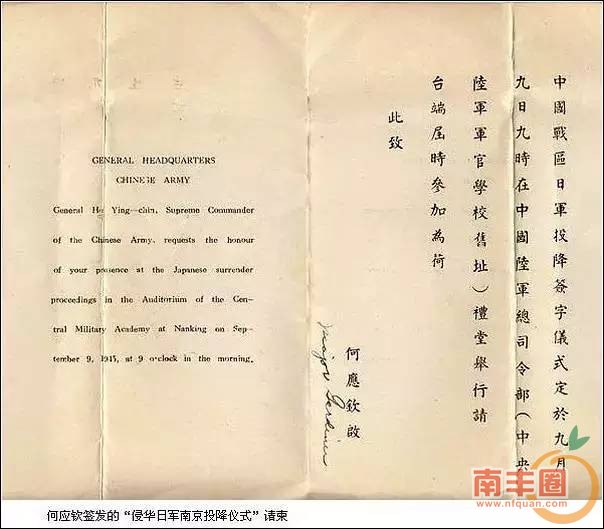 GENERAL HEADQUARTERS
CHINESE ARMY
General Ho Ying—chin, Supreme Commander
of the Chinese Army, requests the honour
of your presence at the Japanese surrender
proceedings in the Auditorium of the Cen—
tral Military Academy at Nanking on Sep—
tember 9, 1945, at 9 o'clock in the morning.
中國戰區日軍投降簽字儀式定於九月
九日九時在中國陸軍總司令部（中央
陸軍軍官學校舊址）禮堂舉行請
台端屆時參加為荷
此致
何應欽啟
Major
南丰圈
www.nfquan.com
何应钦签发的“侵华日军南京投降仪式”请柬